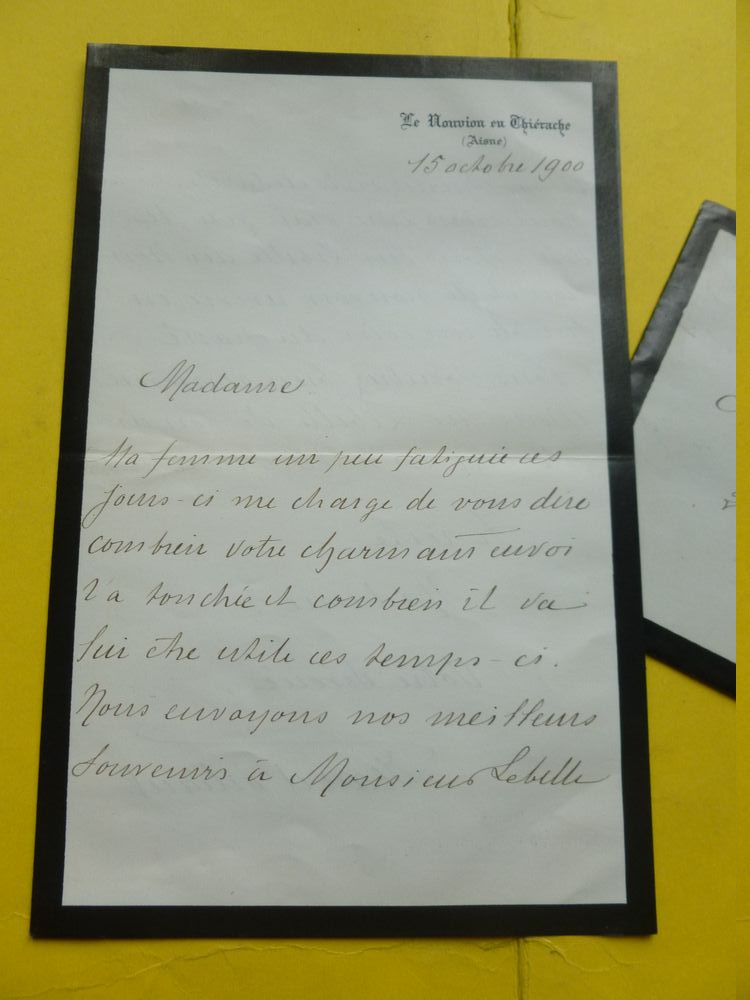 Le Nouvion en Thiérache
(Aisne)
15 octobre 1900
Madame
Ma femme un peu fatiguée ces
jours-ci me charge de vous dire
combien votre charmant envoi
l'a touchée et combien il va
lui être utile ces temps-ci.
Nous envoyons nos meilleurs
souvenirs à Monsieur Lebelle